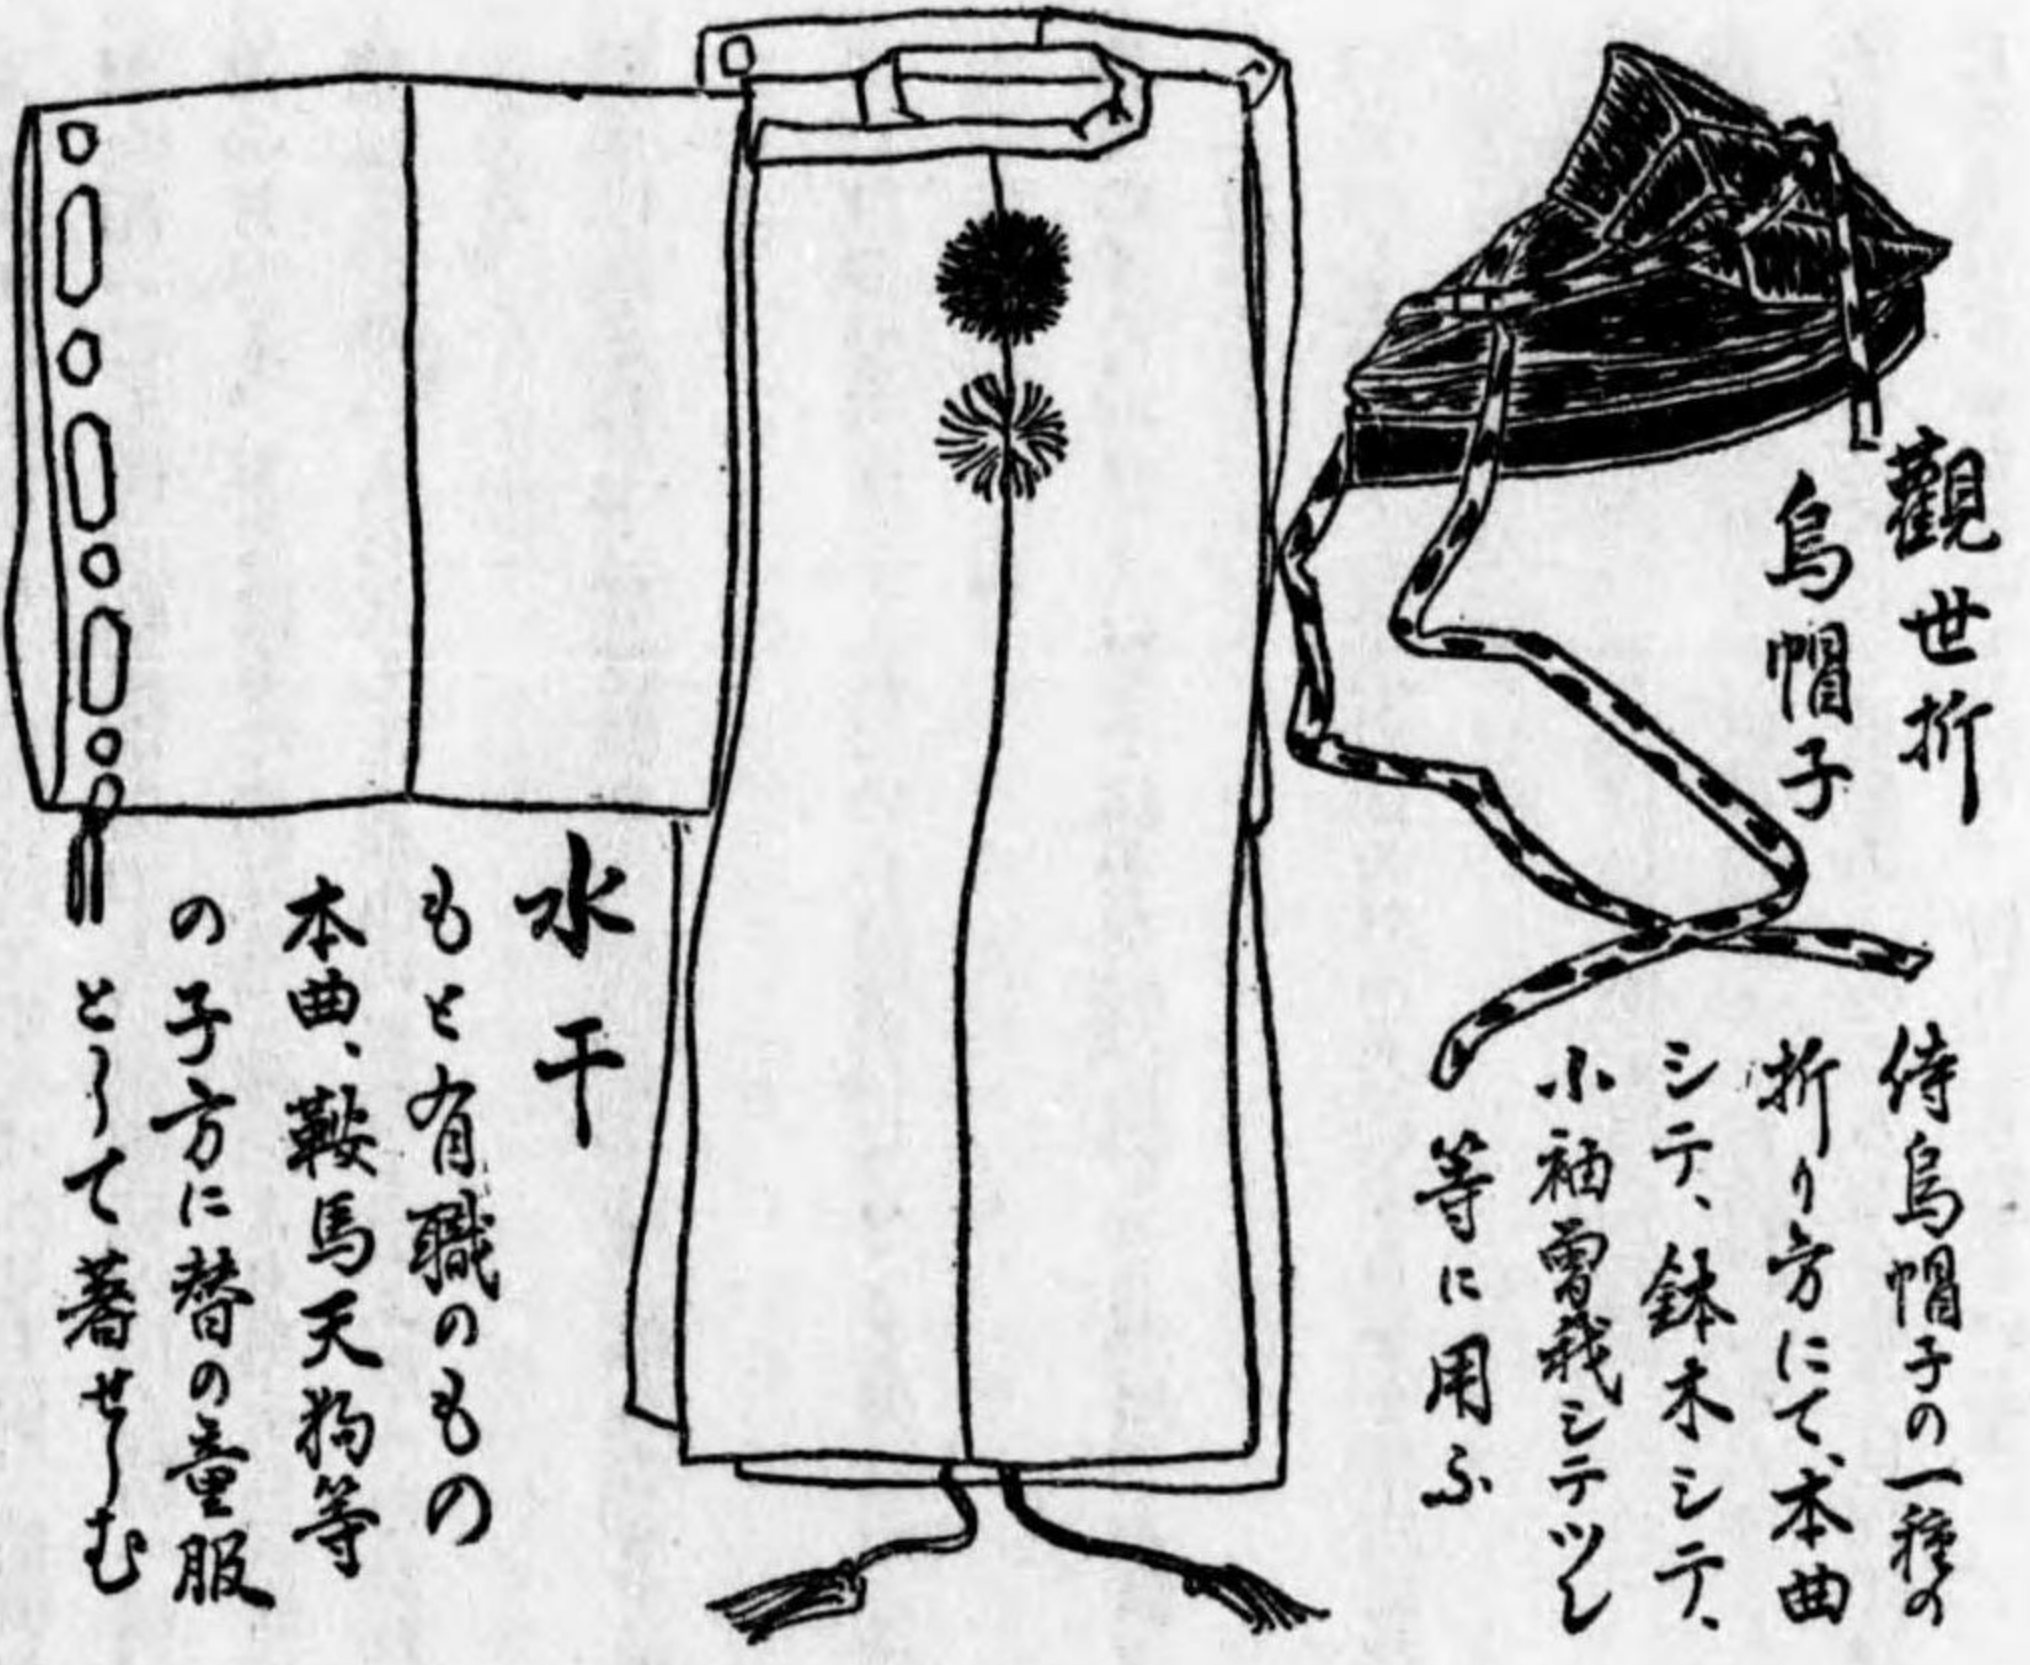 觀世折
烏帽子
侍烏帽子の一種の
折り方にて、本曲
シテ、鉢木シテ、
小袖曽我シテツレ
等に用ふ
水干
もと有職のもの
本曲、鞍馬天狗等
の子方に替の童服
として著せしむ